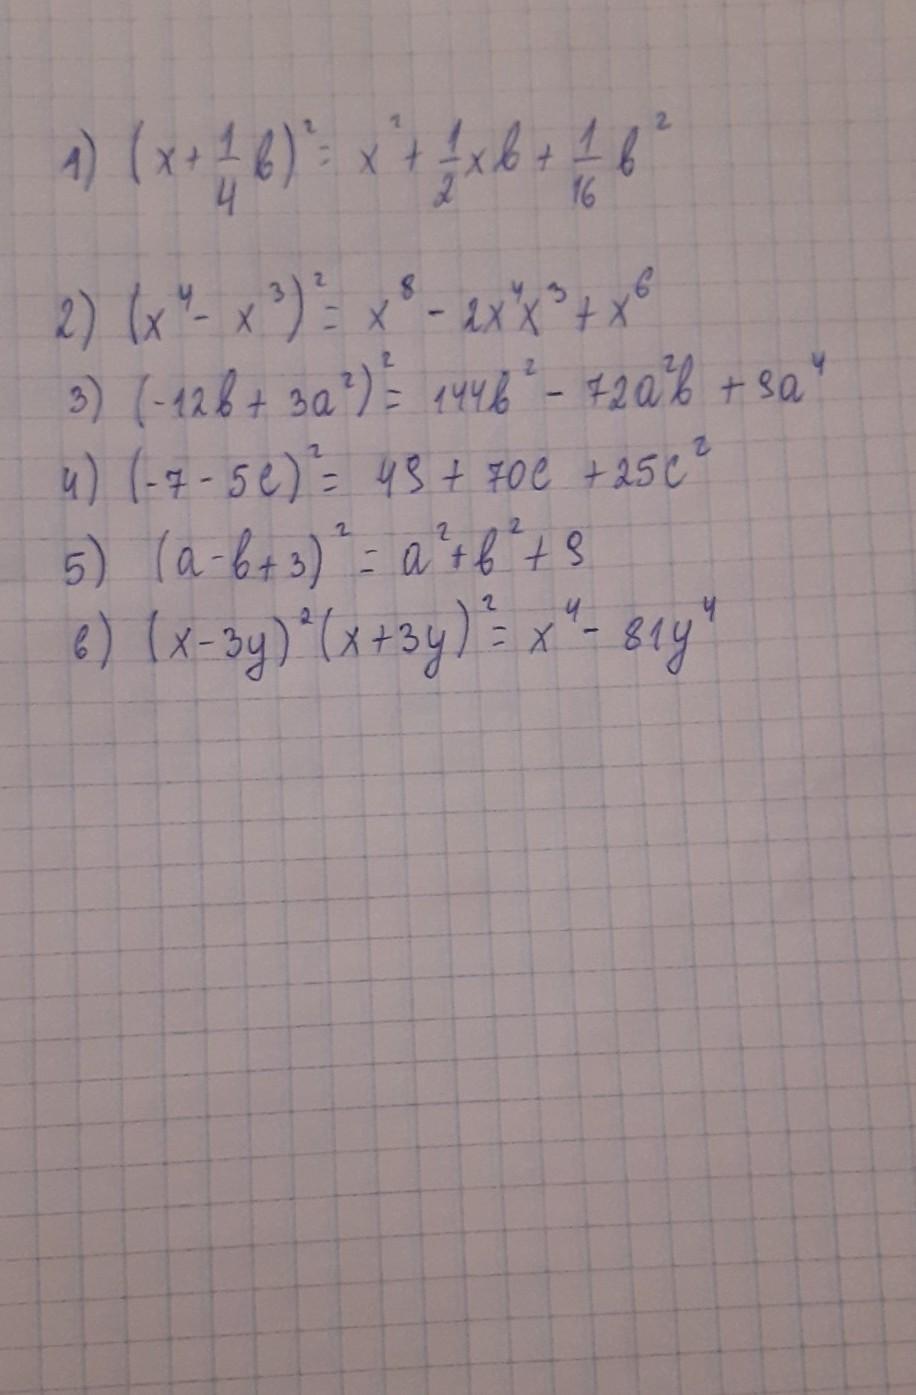 1) (x + 1/4 b)² = x² + 1/2 xb + 1/16 b²
2) (x⁴ - x³)² = x⁸ - 2x⁴x³ + x⁶
3) (-12b + 3a²)² = 144b² - 72a²b + 9a⁴
4) (-7 - 5c)² = 49 + 70c + 25c²
5) (a - b + 3)² = a² + b² + 9
6) (x - 3y)² (x + 3y)² = x⁴ - 81y⁴